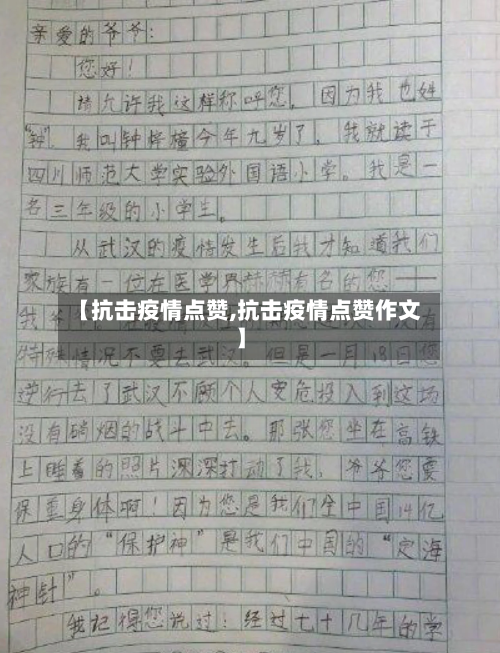 亲爱的爷爷：
您好！
请允许我这样称呼您，因为我也姓
“钟”，我叫钟梓橦今年九岁了，我就读于
四川师范大学实验外国语小学。我是一
名三年级的小学生。
从武汉的疫情发生后我才知道我们
家族有一位在医学界赫赫有名的您——
【抗击疫情点赞,抗击疫情点赞作文
】
特殊情况不要去武汉。但是一月18日您
逆行去了武汉不顾个人安危投入到这场
没有硝烟的战斗中去。那张您坐在高铁
上睡着的照片深深打动了我，爷爷您要
保重身体啊！因为您是我们全中国14亿
人口的“保护神”是我们中国的“定海
神针”。
我记得您说过！经过七十几年的学